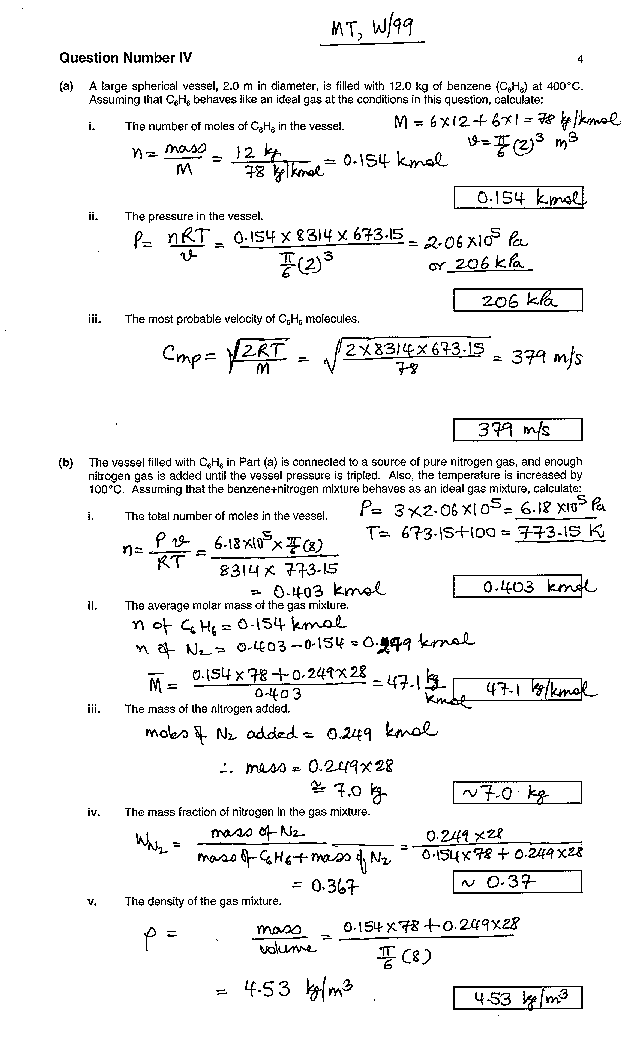 MT, W/99
Question Number IV 4
(a) A large spherical vessel, 2.0 m in diameter, is filled with 12.0 kg of benzene (C₆H₆) at 400°C.
Assuming that C₆H₆ behaves like an ideal gas at the conditions in this question, calculate:
i. The number of moles of C₆H₆ in the vessel. M = 6×12 + 6×1 = 78 kg/kmol
n = mass/M = 12 kg/78 kg/kmol = 0.154 kmol v = π/6 (2)³ m³
0.154 kmol
ii. The pressure in the vessel.
P = nRT/v = 0.154 × 8314 × 673.15 / π/6 (2)³ = 2.06 ×10⁵ Pa
or 206 kPa
206 kPa
iii. The most probable velocity of C₆H₆ molecules.
Cmp = √2RT/M = √2×8314×673.15/78 = 379 m/s
379 m/s
(b) The vessel filled with C₆H₆ in Part (a) is connected to a source of pure nitrogen gas, and enough
nitrogen gas is added until the vessel pressure is tripled. Also, the temperature is increased by
100°C. Assuming that the benzene+nitrogen mixture behaves as an ideal gas mixture, calculate:
i. The total number of moles in the vessel. P = 3×2.06×10⁵ = 6.18 ×10⁵ Pa
T = 673.15+100 = 773.15 K
n = Pv/RT = 6.18×10⁵ × π/6 (8) / 8314 × 773.15
= 0.403 kmol
0.403 kmol
ii. The average molar mass of the gas mixture.
n of C₆H₆ = 0.154 kmol
n of N₂ = 0.403 − 0.154 = 0.249 kmol
M̅ = 0.154 × 78 + 0.249 × 28 / 0.403 = 47.1 kg/kmol
47.1 kg/kmol
iii. The mass of the nitrogen added.
moles of N₂ added = 0.249 kmol
∴ mass = 0.249×28
≅ 7.0 kg
~7.0 kg
iv. The mass fraction of nitrogen in the gas mixture.
W_N₂ = mass of N₂ / mass of C₆H₆ + mass of N₂ = 0.249 ×28 / 0.154×78 + 0.249×28
= 0.367
~ 0.37
v. The density of the gas mixture.
ρ = mass/volume = 0.154 ×78 + 0.249×28 / π/6 (8)
= 4.53 kg/m³
4.53 kg/m³